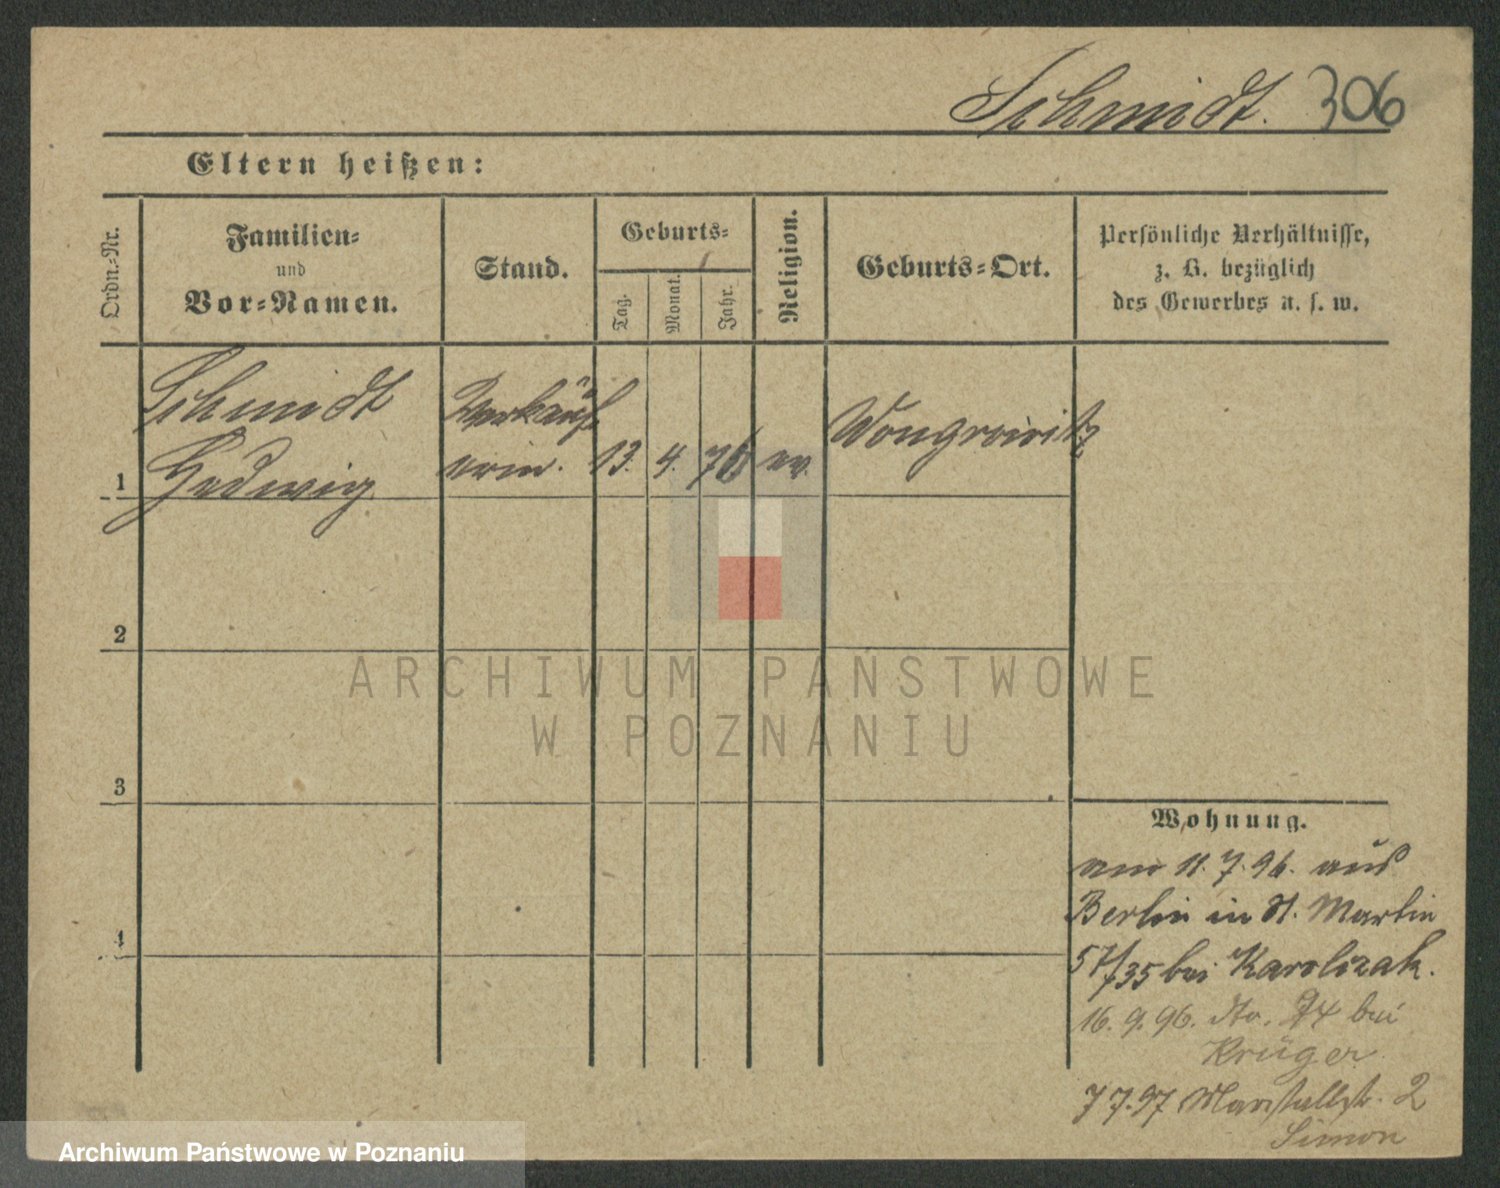 Schmidt. 306
Eltern heißen:
Ordn.-Nr.
Familien-
und
Vor-Namen.
Stand.
Geburts-
Tag.
Monat.
Jahr.
Religion.
Geburts-Ort.
Persönliche Verhältnisse,
z. B. bezüglich
des Gewerbes u. s. w.
1
Schmidt
Hedwig
Verkäuf
erin.
13. 4. 76 ev.
Wongrowitz
2
3
4
Wohnung.
am 11.7.96. aus
Berlin in St. Martin
57/35 bei Karolczak.
16.9.96. dto. 74 bei
Krüger
7 7.97 Marstallstr. 2
Simon
ARCHIWUM PAŃSTWOWE
W POZNANIU
Archiwum Państwowe w Poznaniu